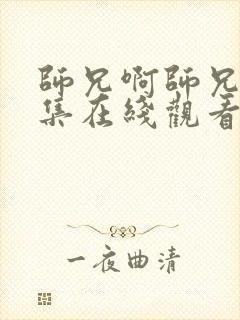 師兄啊師兄
集在綫觀看
一夜曲清